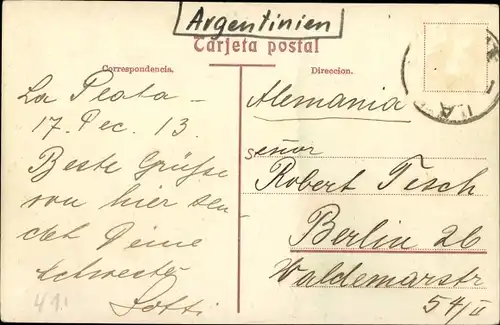 Argentinien
Tarjeta postal
Correspondencia.
Direccion.
La Plata -
17. Dec. 13.
Beste Grüße
von hier sen-
det Deine
Schwester
Lotti
Alemania
Señor
Robert Tesch
Berlin 26
Waldemarstr
54/II